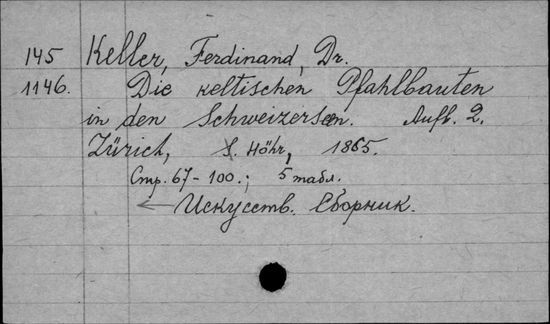 145 Keller, Ferdinand, Dr.
1146. Die keltischen Pfahlbauten
in den Schweizerseen. Aufl. 2.
Zürich, S. Höhr, 1865.
Стр. 67-100.; 5 табл.
← Искусств. Сборник.